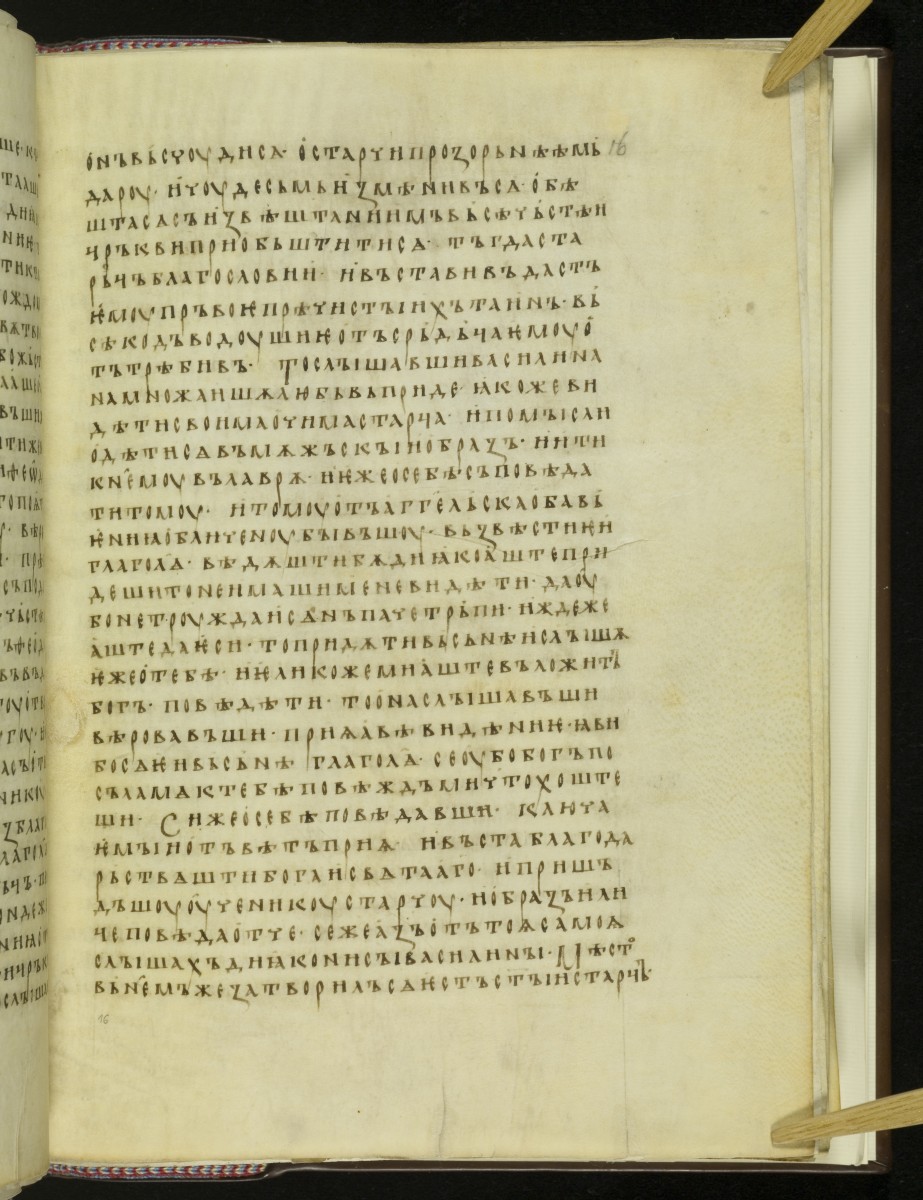 ѻнъ вьсчоудисѧ· ѻ старчи прозорьнѣѣмь 16
дароу· и чоудесьмь измѣнивъ сѧ· ѻбѣ
шта сѧ съ извѣштаниимъ вьсѣчьстѣи
чрькви приобьштити сѧ· тъгда ста
рьчь благословии· и въставивъ дастъ
ѥмоу прьвоѥ прѣчистыихъ таинъ· вь
сѣко дъводоушиѥ отъ срьдьча ѥмоу ѻ
тътрѣбивъ· То слышавши василина
на множаишѫѭ любъвь приде· ꙗкоже ви
дѣти своима очима старча· и помысли
одѣти сѧ въ мѫжъскыи образъ· и ити
к нѥмоу въ лаврѫ· и ѥже о себѣ съповѣда
ти томоу· и томоу отъ аггельска обавь
ѥниꙗ обличеноу бывъшоу· възвѣсти ѥи
глаголѧ· вѣдѫшти бѫди ꙗко аште при
деши то не имаши мене видѣти· да оу
бо не троуждаи сѧ нъ паче трьпи· иждеже
аште да ѥси· то придѫ ти въ сьнѣ и слышѫ
ѥже о тебѣ· и ѥликоже ми аште въложить
богъ· повѣдѣти· то она слышавъши
вѣровавъши· приѩ авѣ видѣниѥ· ꙗви
бо сѧ ѥи въ сьнѣ глаголѧ· се оубо богъ по
съла мѧ к тебѣ повѣждъ ми что хоште
ши· Си же о себѣ повѣдавши· ключа
ѥмыи отъвѣтъ приѩ· и въста благода
рьствѧшти бога и свѧтааго· и пришъ
дъшоу оученикоу старчоу· и образъ и ли
че повѣда отче· се же азъ отъ тоѩ самоѩ
слышахъ диꙗконисы василины· Мѣсто
въ нѥмъже затворилъ сѧ ѥстъ стыи старчь
16